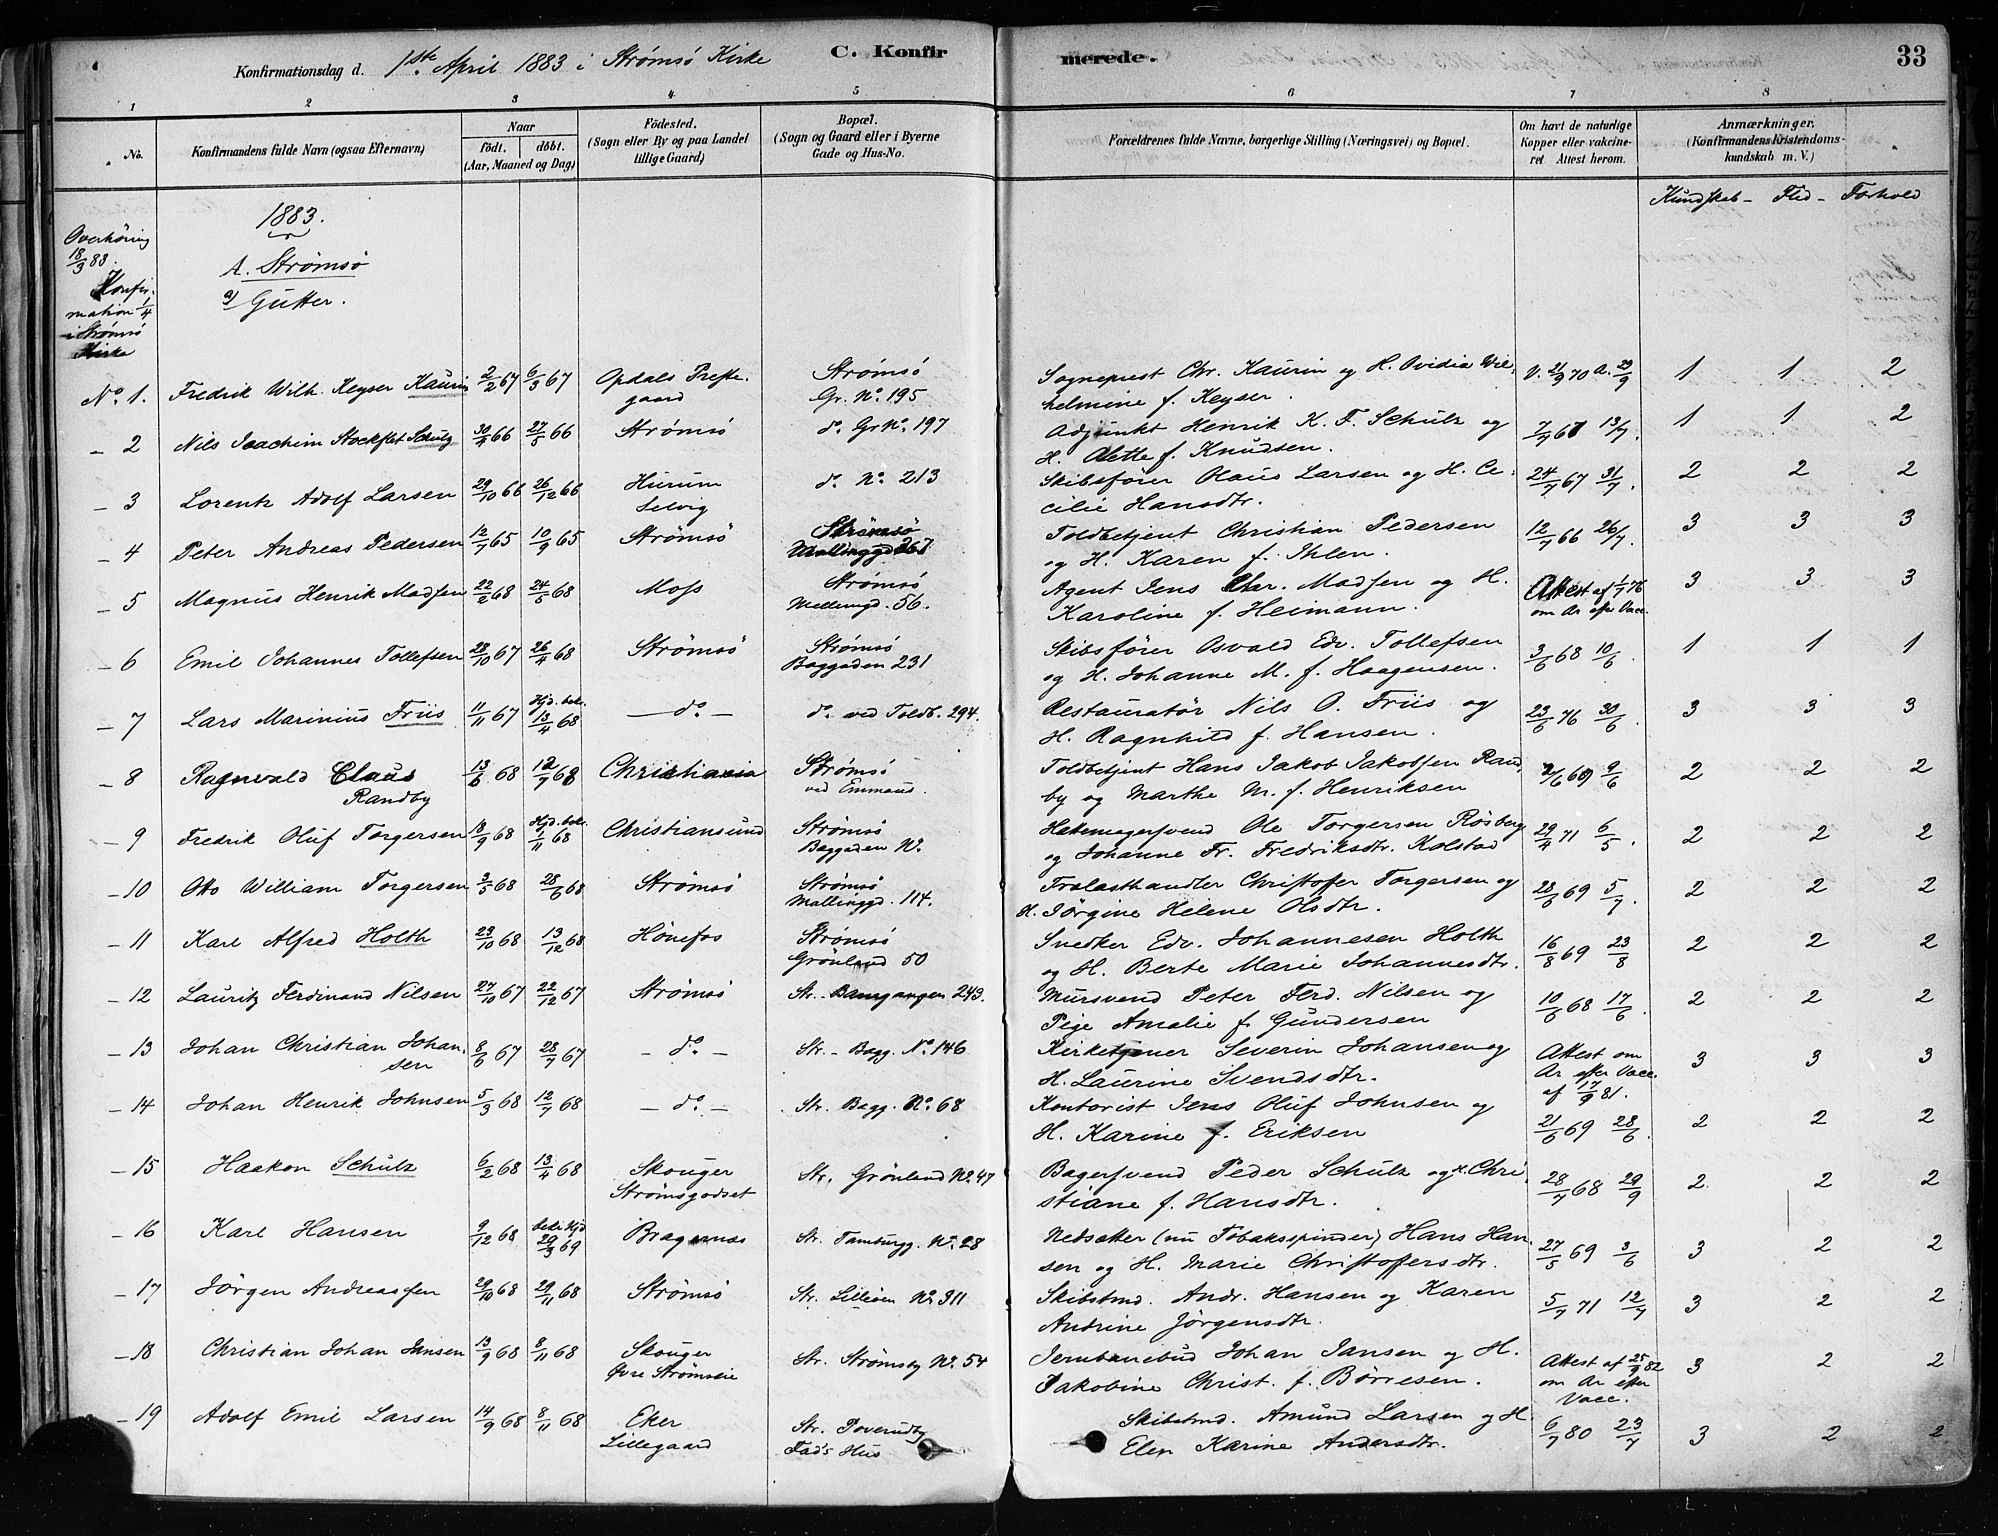 Konfirmationsdag d. 1ste April 1883 i Strømsö Kirke C. Konfirmerede. 33
1 2 3 4 5 6 7 8
No. Konfirmandens fulde Navn (ogsaa Efternavn) Naar Födested. Bopæl. Forældrenes fulde Navne, borgerlige Stilling (Næringsvei) og Bopæl. Om havt de naturlige Anmærkninger.
födt. döbt. (Sogn eller By og paa Landet (Sogn og Gaard eller i Byerne Kopper eller vakcine- (Konfirmandens Kristendoms-
(Aar, Maaned og Dag) tillige Gaard) Gade og Hus-No. ret Attest herom. kundskab m. V.)
Kundskab - Flid - Forhold
1883.
Overhöring
18/3 83.
A. Strømsö
Konfir-
mation 1/4
a) Gutter.
i Strømsö
Kirke
No. 1. Fredrik Wilh. Keyser Kaurin 2/2 67 6/3 67 Opdals Preste- Strømsö Sognepræst Chr. Kaurin og H. Ovidia Wil- V. 21/9 70 A. 29/9 1 1 2
gaard Gr. No. 195 helmine f. Keyser.
- 2 Nils Joachim Stockflet Schulz 30/4 66 27/5 66 Strømsö do. Gr No. 197 Adjunkt Henrik K. F. Schulz og 7/7 67 13/7. 1 1 2
H. Alette f. Knudsen.
- 3 Lorentz Adolf Larsen 29/10 66 26/12 66 Hurum do. No. 213 Skibsfører Olaus Larsen og H. Ce- 24/7 67 31/7. 2 2 2
Selvig cilie Hansdtr.
- 4 Peter Andreas Pedersen 12/7 65 10/9 65 Strømsö Strømsö Toldbetjent Christian Pedersen 12/7 66 26/7. 3 3 3
Mallinggd 267 og H. Karen f. Ihlen.
- 5 Magnus Henrik Madsen 22/2 68 24/5 68 Moss Strømsö Agent Jens Chr. Madsen og H. Attest af 1/7 76 3 3 3
Mallingd. 56. Karoline f. Heimann. om Ar efter Vacc.
- 6 Emil Johannes Tollefsen 28/10 67 26/4 68 Strømsö Strømsö Skibsfører Osvald Edv. Tollefsen 3/6 68 10/6. 1 1 1
Baggaden 231 og H. Johanne M. f. Haagensen.
- 7 Lars Marinius Friis 11/11 67 Hjd. bekr. 13/4 68 - do. - do. ved Toldb. 294. Restauratör Nils O. Friis og 23/6 76 30/6 3 3 3
H. Ragnhild f. Hansen.
- 8 Ragnvald Claus 13/6 68 12/7 68 Christiania Strømsö Toldbetjent Hans Jakob Jakobsen Rand- 2/6 69 9/6 2 2 2
Randby ved Emmaud. by og Marthe M. f. Henriksen
- 9 Fredrik Oluf Torgersen 18/9 68 Hjd. bekr. 1/11 68 Christiansund Strømsö Hattemagersvend Ole Torgersen Rösberg 29/4 71 6/5. 2 2 2
Baggaden No. og Johanne Fr. Fredriksdtr. Kolstad
- 10 Otto William Torgersen 3/5 68 28/6 68 Strømsö Strømsö Trælasthandler Christofer Torgersen og 28/6 69 5/7 2 2 2
Mallinggd. 114. H. Jörgine Helene Olsdtr.
- 11 Karl Alfred Holth 23/10 68 13/12 68 Hönefos Strømsö Snedker Edv. Johannesen Holth 16/8 69 23/8 2 2 2
Grönland 50 og H. Berte Marie Johannesdtr.
- 12 Lauritz Ferdinand Nilsen 27/10 67 22/12 67 Strømsö Str. Banegangen 249. Mursvend Peter Ferd. Nilsen og 10/6 68 17/6 2 2 2
Pige Amalie f. Gundersen
- 13 Johan Christian Johan- 8/6 67 28/7 67 - do. - Str. - Bagg. No. 146 Kirketjener Severin Johansen og Attest om 3 3 3
sen H. Laurine Svendsdtr. Ar efter Vacc.
af 17/9 81.
- 14 Johan Henrik Johnsen 5/3 68 12/7 68 - do. - Str. Bagg. No. 68 Kontorist Jens Oluf Johnsen og 21/6 69 28/6. 2 2 2
H. Karine f. Eriksen
- 15 Haakon Schulz 6/2 68 13/4 68 Skouger Str. Grönland No. 47 Bagersvend Peder Schulz og H. Chri- 28/7 68 29/9 2. 2 2
Strømsgodset stiane f. Hansdtr.
- 16 Karl Hansen 9/12 68 bekr. Hjd 29/3 69 Bragernæs Str. Tamburgg. No. 28 Nedsætter (nu Tobaksspinder) Hans Han- 27/5 69 3/6 3 2 2
sen og H. Marie Christoffersdtr.
- 17 Jörgen Andreassen 29/10 68 29/11 68 Strømsö Str. Lilleöen No. 311 Skibstmd. Andr. Hansen og Karen 5/7 71 12/7 3 2 2
Andrine Jörgensdtr.
- 18 Christian Johan Jansen 13/9 68 8/11 68 Skouger Str. Strømsby No. 54 Jernbanebud Johan Jansen og H. Attest af 25/9 82 3 2 2
Øvre Strømseie Jakobine Christ. f. Börresen. om Ar efter
Vacc.
- 19 Adolf Emil Larsen 14/9 68 8/11 68 Eker Str. Poverudby Skibstmd. Amund Larsen og H. 6/7 80 23/7 3 2 2
Lillegaard Fads Hus Elen Karine Andersdtr.